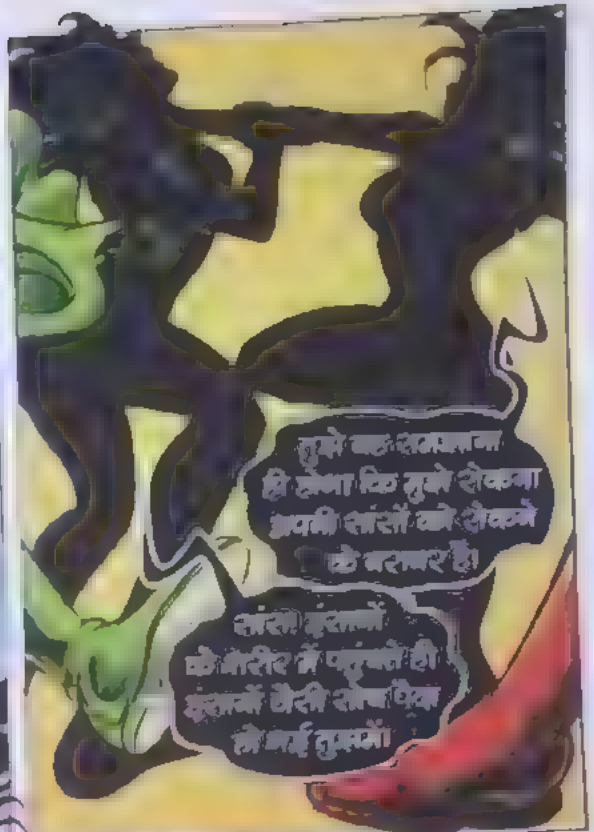 तुझे यह समझाना
ही होगा कि तुझे रोकना
अपनी सांसों को रोकने
के बराबर है।
इंसानों
के शरीर में पहुंचते ही
इंसानों जैसी सोच पैदा
हो गई तुझमें।